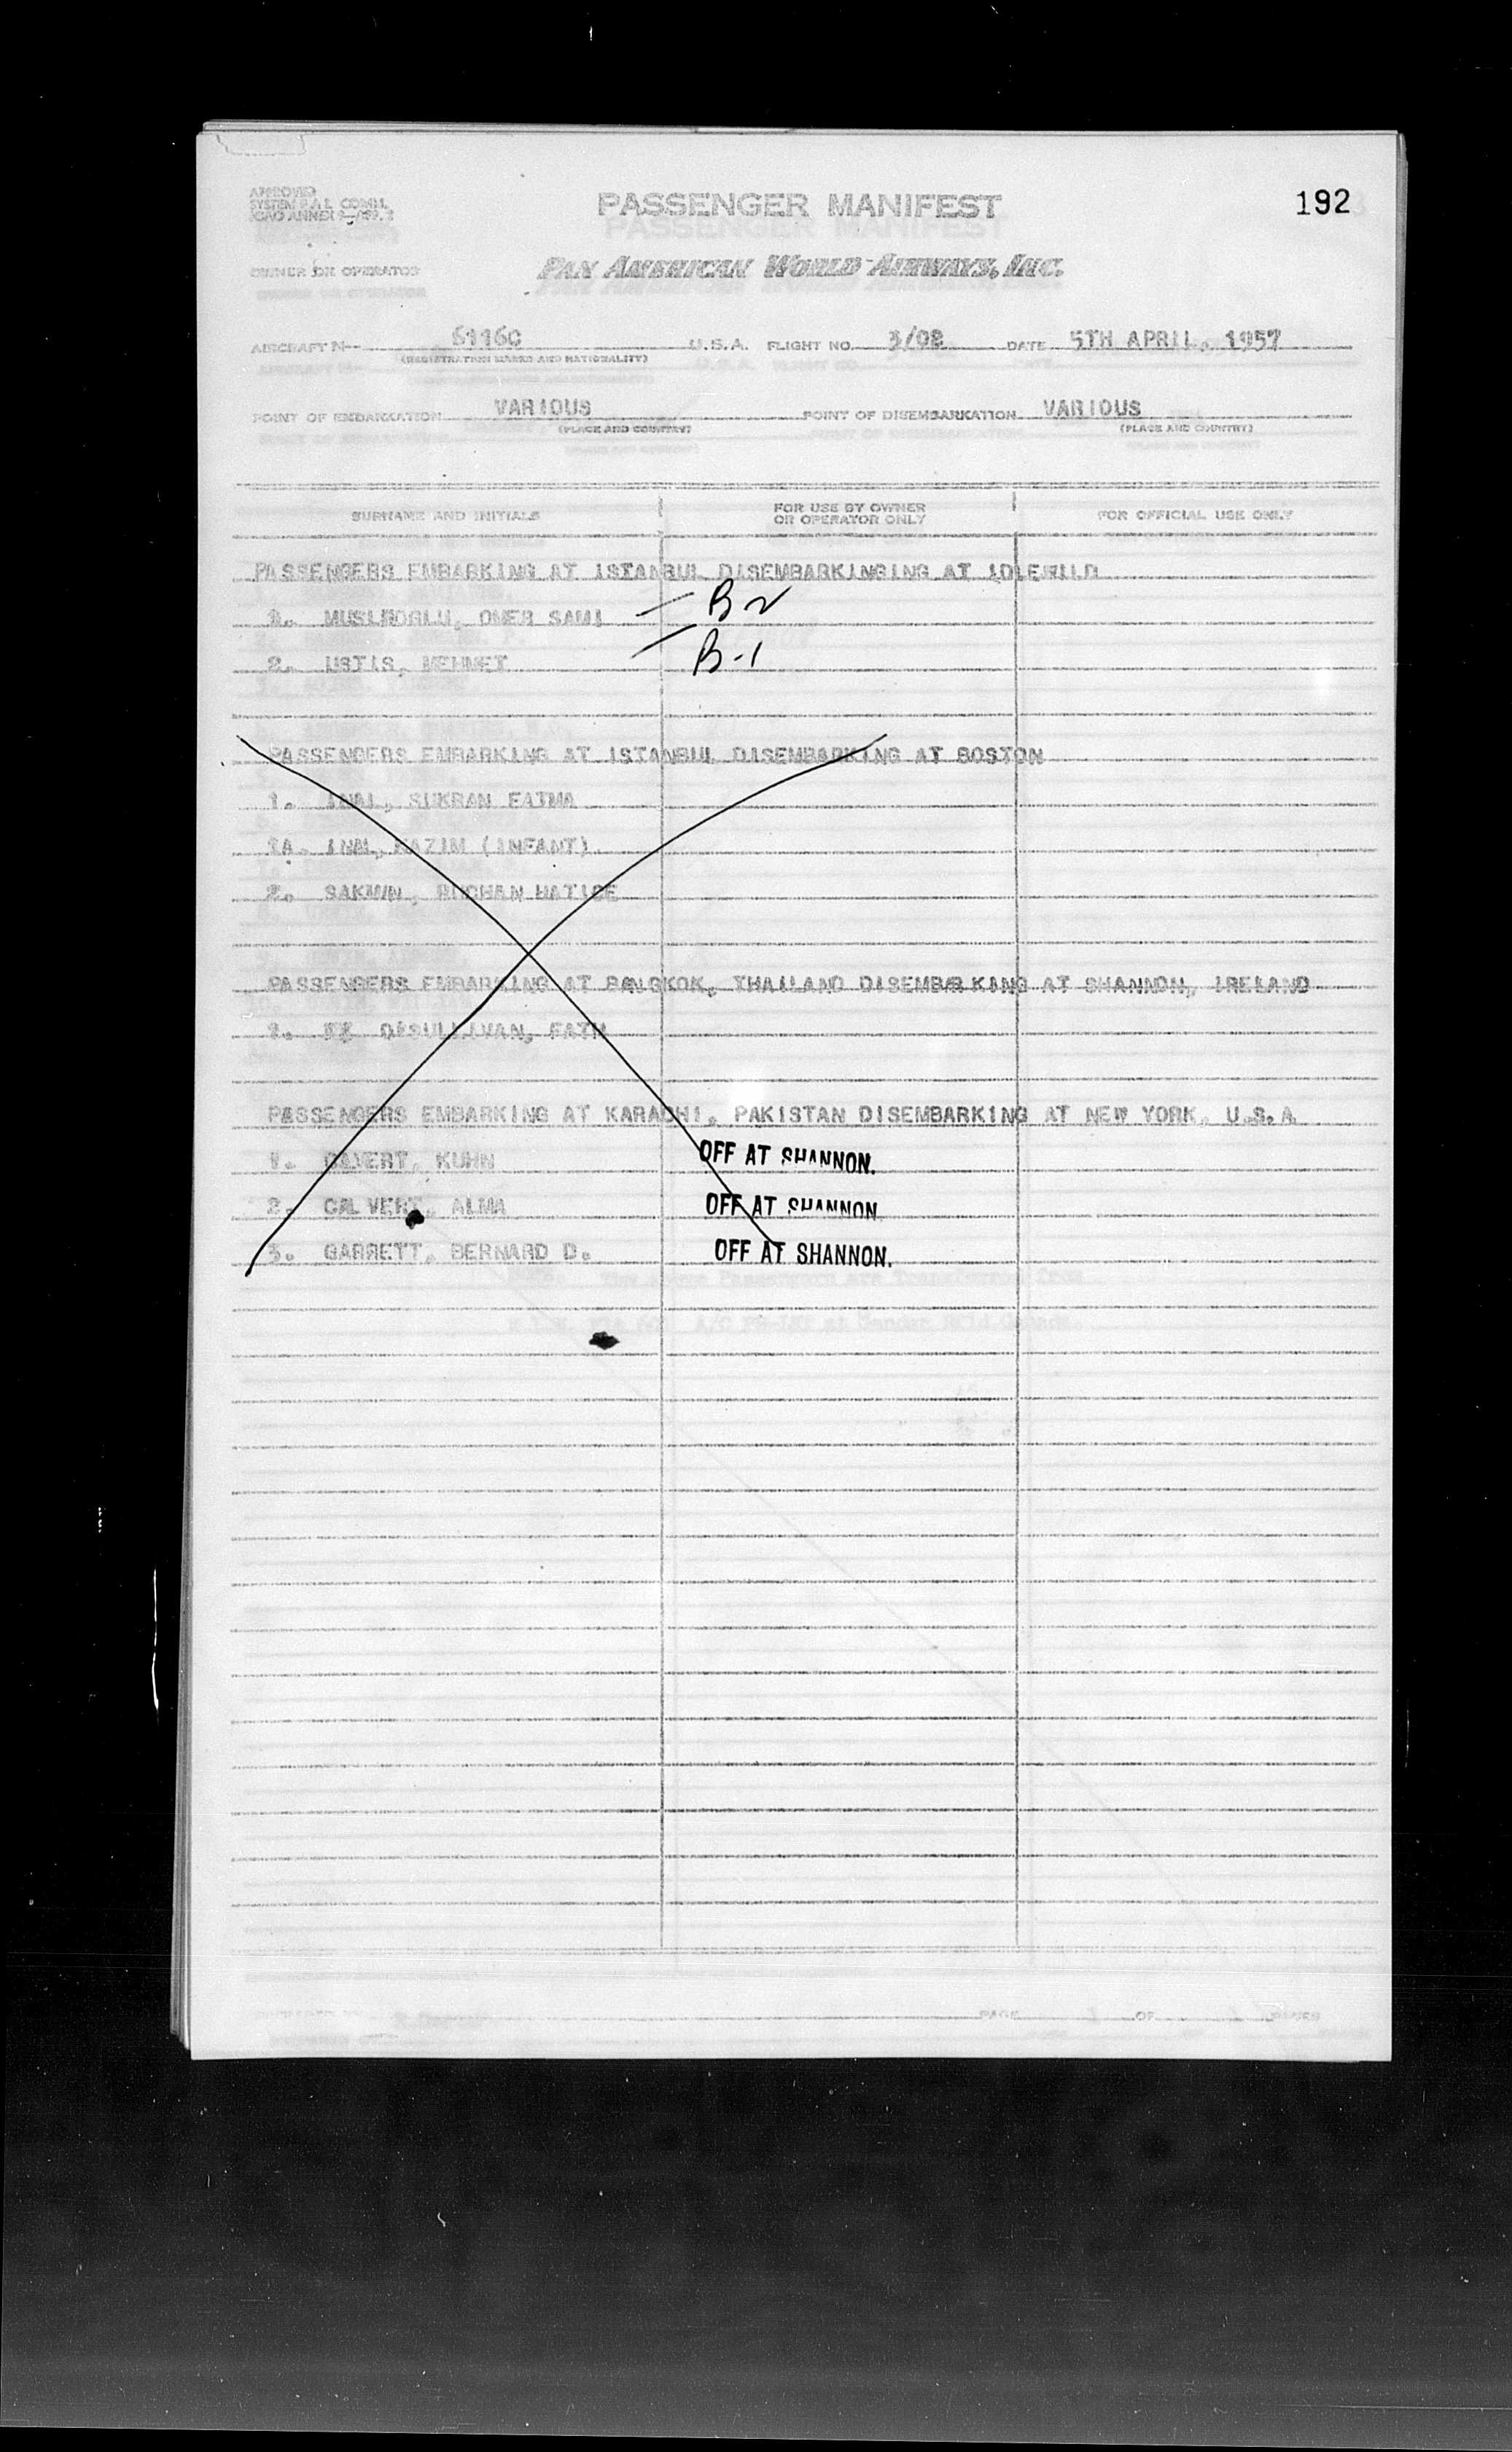 192
APPROVED
PASSENGER MANIFEST
OWNER OR OPERATOR
PAN AMERICAN WORLD AIRWAYS, INC.
AIRCRAFT N-- 6116C U.S.A. FLIGHT NO. 3/02 DATE 5TH APRIL, 1957
(REGISTRATION MARKS AND NATIONALITY)
POINT OF EMBARKATION VARIOUS POINT OF DISEMBARKATION VARIOUS
(PLACE AND COUNTRY) (PLACE AND COUNTRY)
SURNAME AND INITIALS FOR USE BY OWNER OR OPERATOR ONLY FOR OFFICIAL USE ONLY
PASSENGERS EMBARKING AT ISTANBUL DISEMBARKINGING AT IDLEWILD
1. OMER SAMI B2
2. USTIS, MEHMET B-1
PASSENGERS EMBARKING AT ISTANBUL DISEMBARKING AT BOSTON
1. INAL, SUKRAN FATMA
1A. INAL, NAZIM (INFANT)
2. HATICE
PASSENGERS EMBARKING AT BANGKOK, THAILAND DISEMBARKING AT SHANNON, IRELAND
1. FATH
PASSENGERS EMBARKING AT KARACHI, PAKISTAN DISEMBARKING AT NEW YORK, U.S.A.
1. KUHN OFF AT SHANNON.
2. CALVERT, ALMA OFF AT SHANNON
3. GARRETT, BERNARD D. OFF AT SHANNON.
PAGE OF PAGES